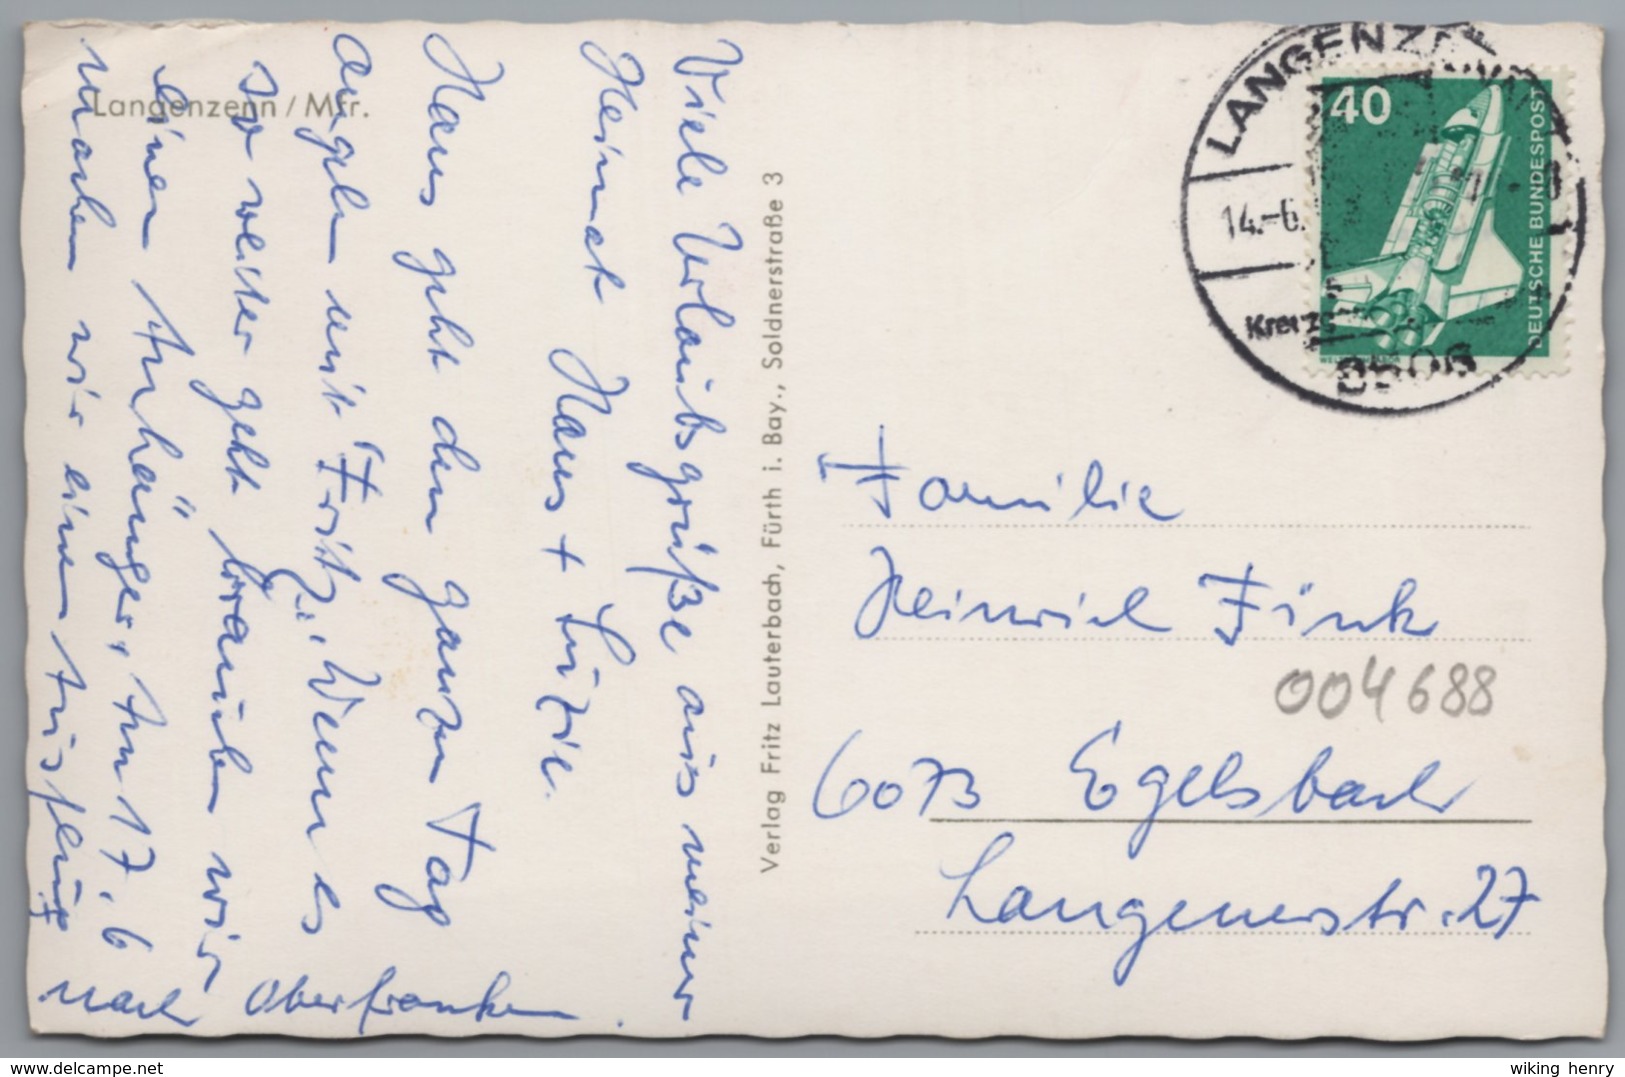 Langenzenn / Mfr.
Viele Urlaubsgrüße aus meiner
Heimat Hans + Luzie.
Hans geht den ganzen Tag
angeln mit "Fritz". Wenn es
so weiter geht brauchen wir
einen Anhänger. Am 17.6
machen wir einen Ausflug
nach Oberfranken.
Verlag Fritz Lauterbach, Fürth i. Bay., Soldnerstraße 3
LANGENZENN
14.-6.
8506
40
DEUTSCHE BUNDESPOST
Familie
Heinrich Fink
004688
6073 Egelsbach
Langenerstr. 27
delcampe.net
wiking henry